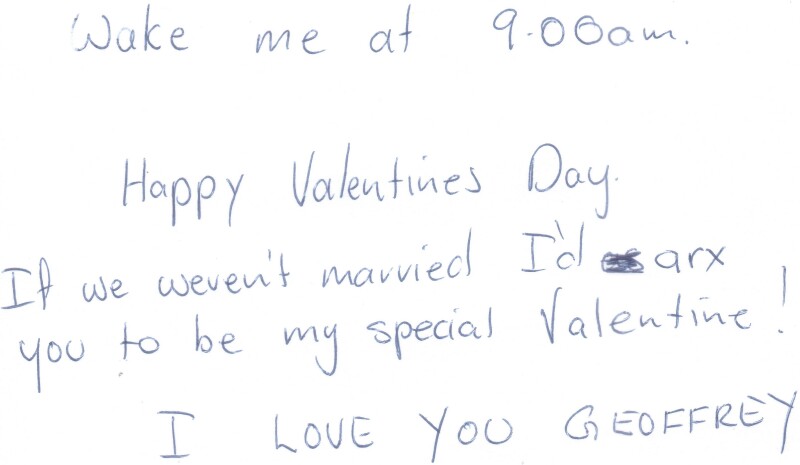 Wake me at 9.00am.
Happy Valentines Day.
If we weren't married I'd arx
you to be my special Valentine!
I LOVE YOU GEOFFREY